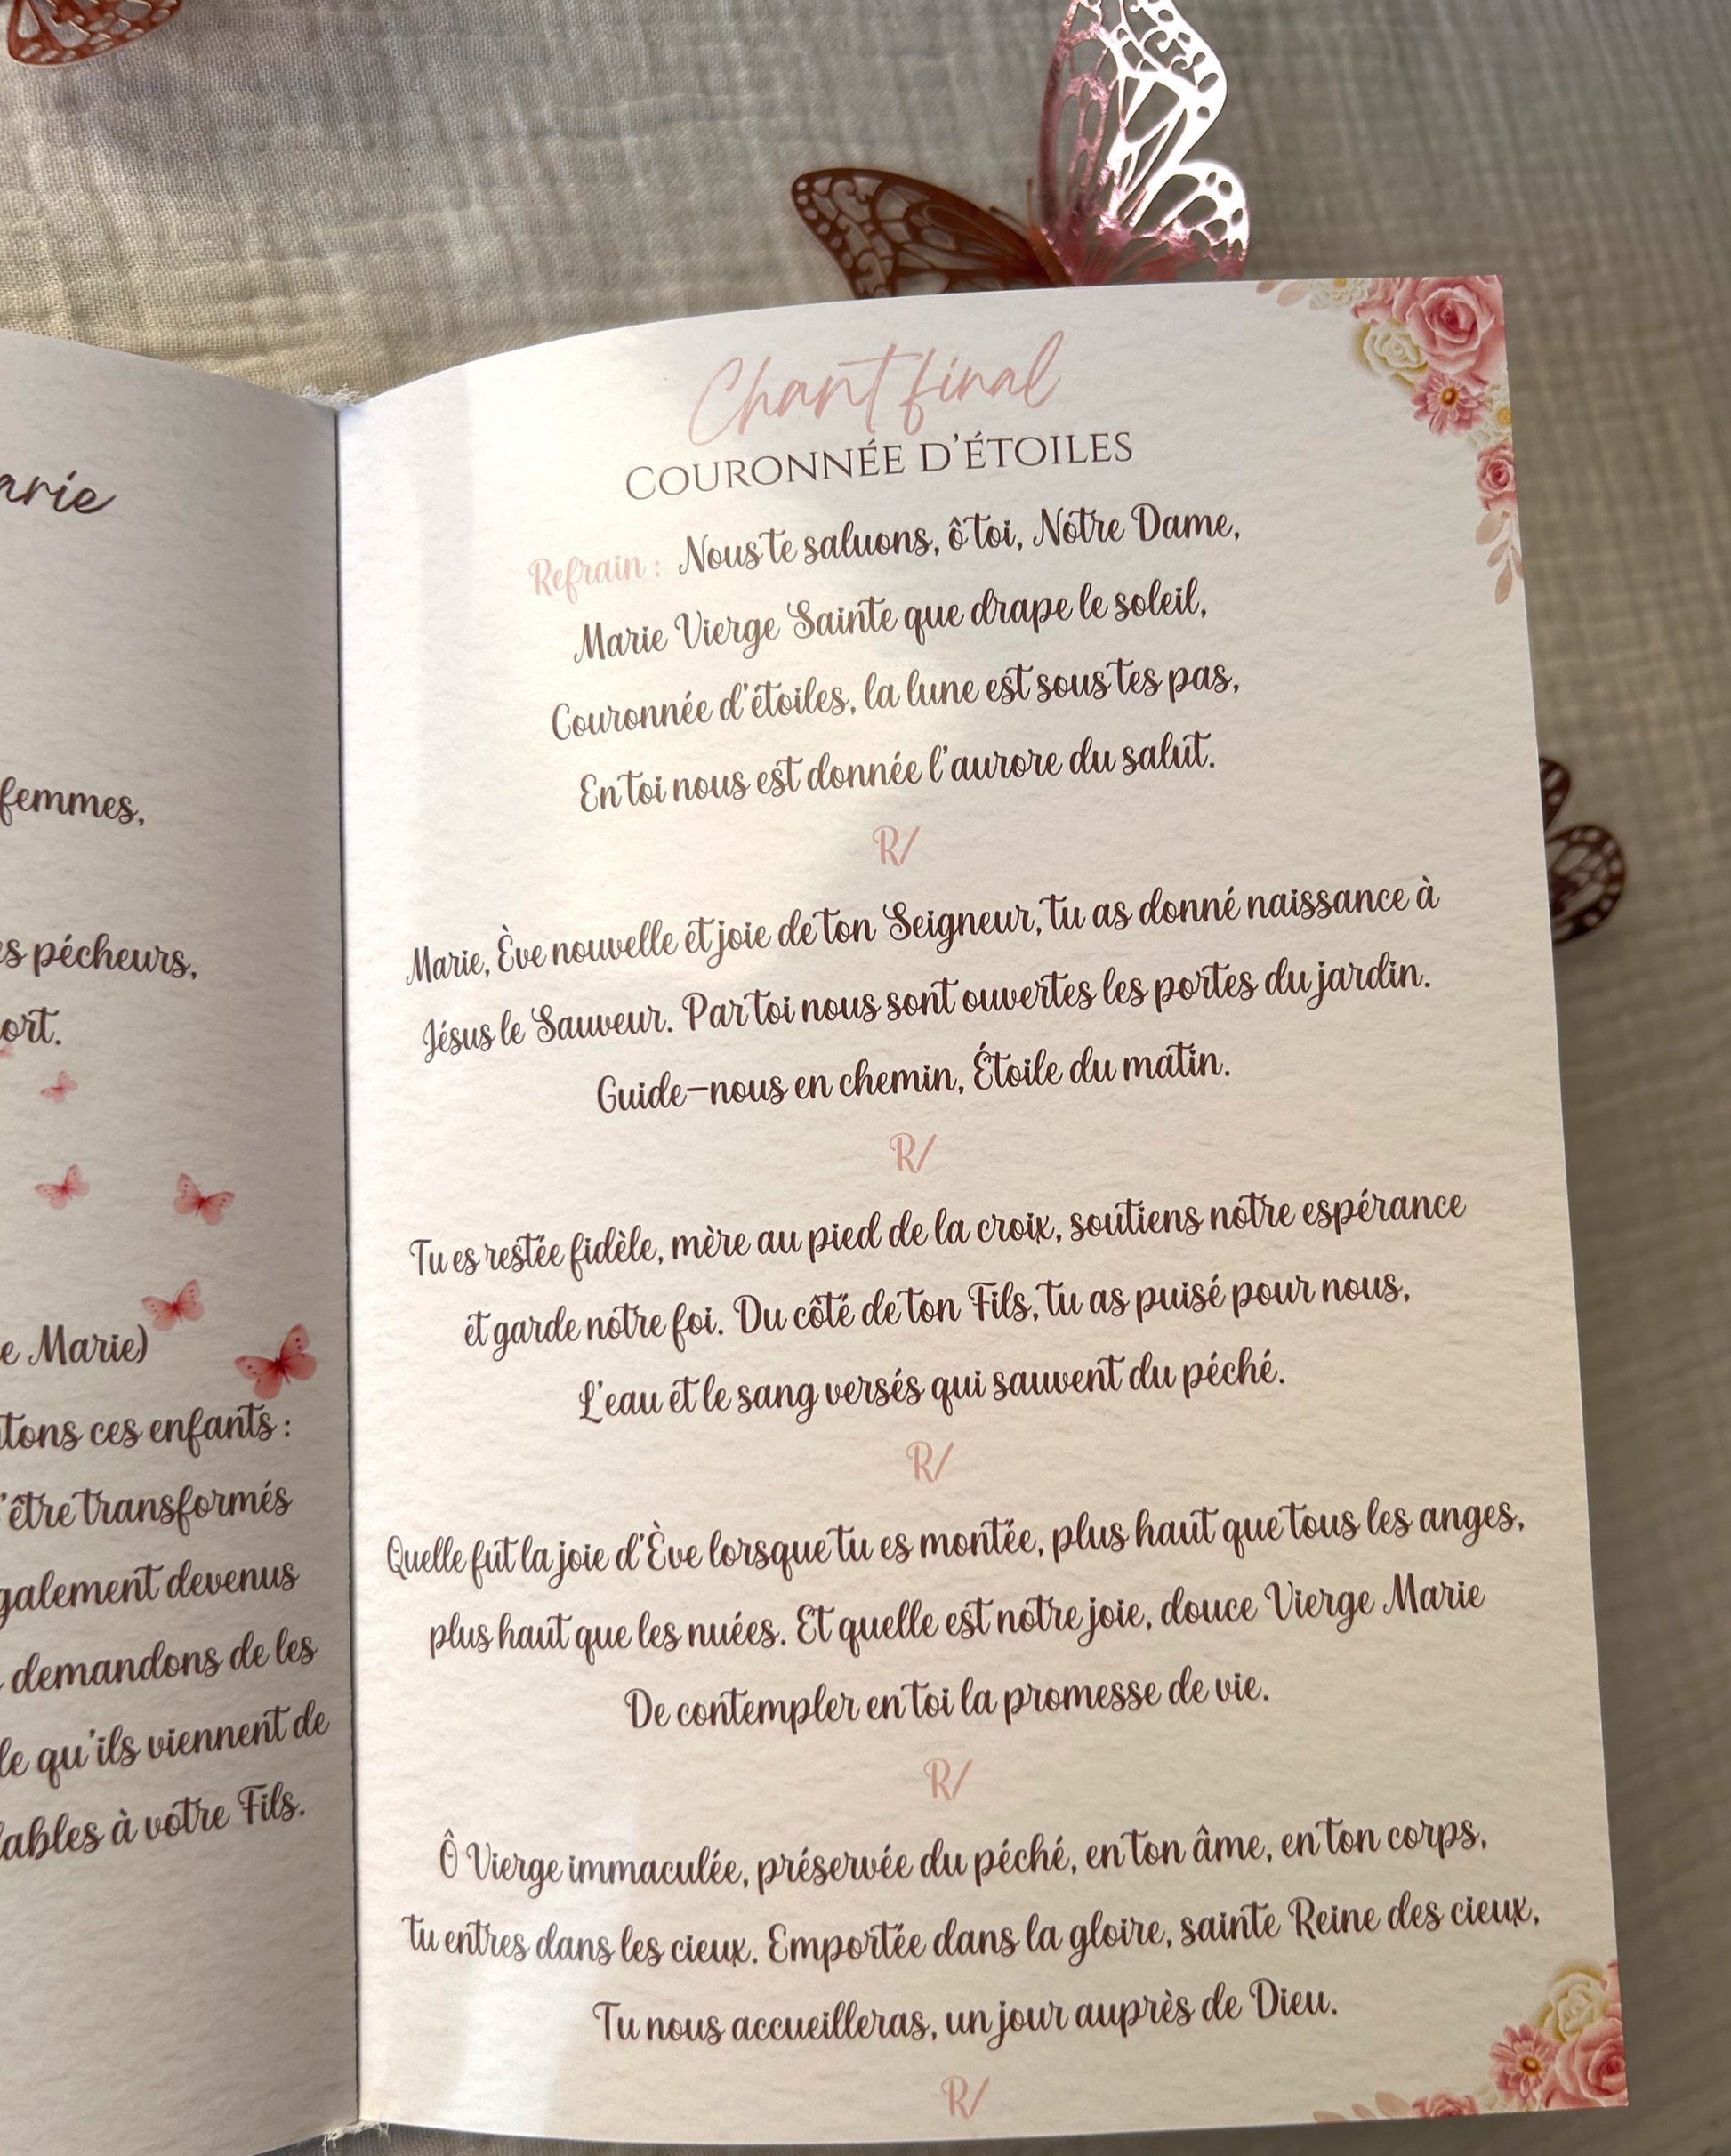 arie
femmes,
es pécheurs,
ort.
e Marie)
tons ces enfants :
'être transformés
galement devenus
demandons de les
le qu'ils viennent de
lables à votre Fils.
Chant final
COURONNÉE D'ÉTOILES
Refrain : Nous te saluons, ô toi, Notre Dame,
Marie Vierge Sainte que drape le soleil,
Couronnée d'étoiles, la lune est sous tes pas,
En toi nous est donnée l'aurore du salut.
R/
Marie, Ève nouvelle et joie de ton Seigneur, tu as donné naissance à
Jésus le Sauveur. Par toi nous sont ouvertes les portes du jardin.
Guide-nous en chemin, Étoile du matin.
R/
Tu es restée fidèle, mère au pied de la croix, soutiens notre espérance
et garde notre foi. Du côté de ton Fils, tu as puisé pour nous,
L'eau et le sang versés qui sauvent du péché.
R/
Quelle fut la joie d'Ève lorsque tu es montée, plus haut que tous les anges,
plus haut que les nuées. Et quelle est notre joie, douce Vierge Marie
De contempler en toi la promesse de vie.
R/
Ô Vierge immaculée, préservée du péché, en ton âme, en ton corps,
tu entres dans les cieux. Emportée dans la gloire, sainte Reine des cieux,
Tu nous accueilleras, un jour auprès de Dieu.
R/